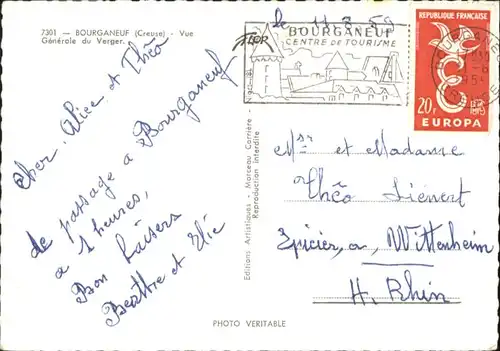 7301 — BOURGANEUF (Creuse) - Vue
Générale du Verger.
le 11 8 59
BOURGANEUF
CENTRE DE TOURISME
REPUBLIQUE FRANÇAISE
20F
EUROPA
cher. Alice et Théo
de passage a Bourganeuf
a 1 heures,
Bon baisers
Beattre et Elie
Editions Artistiques - Marceau Carrière -
Reproduction interdite
Mr et Madame
Théo Liénert
Epicier, a, Wittenheim
H. Rhin
PHOTO VERITABLE